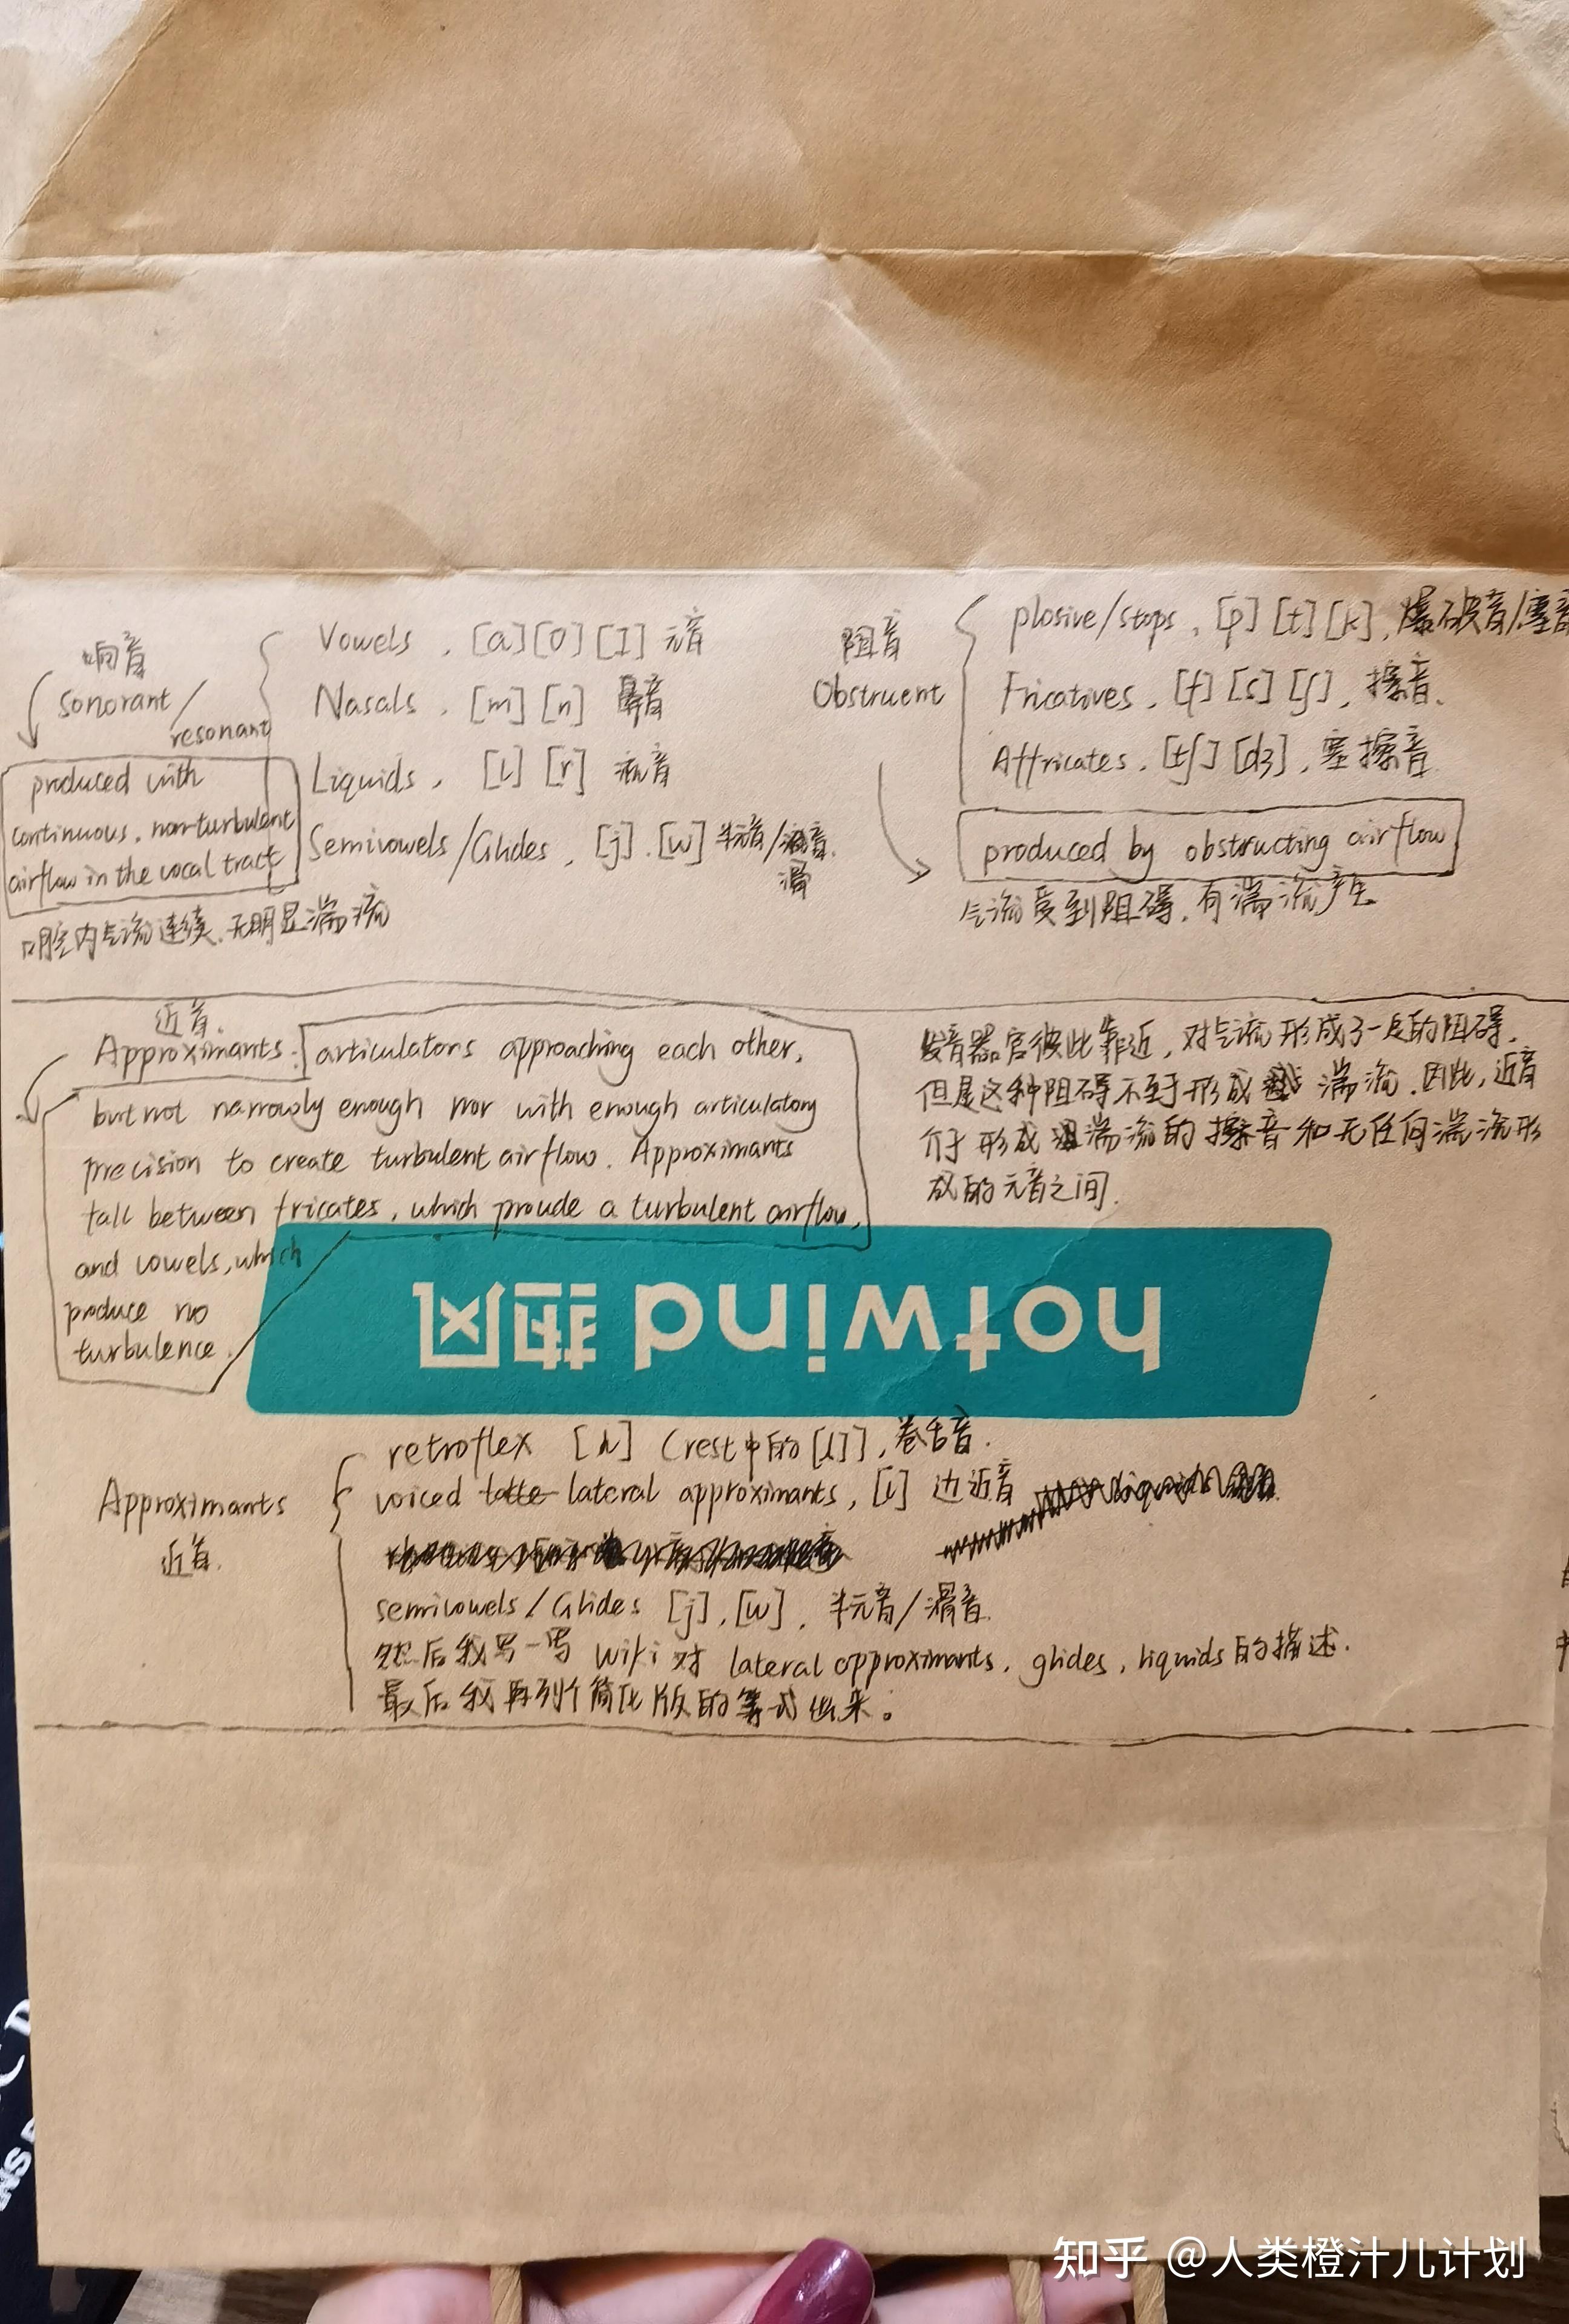 响音
sonorant/
resonant
produced with
continuous, non-turbulent
airflow in the vocal tract
口腔内气流连续,无明显湍流
Vowels, [a][o][I] 元音
Nasals, [m][n] 鼻音
Liquids, [l][r] 流音
Semivowels/Glides, [j], [w] 半元音/滑音.
阻音
Obstruent
plosive/stops, [p][t][k], 爆破音/塞音
Fricatives, [f][s][ʃ], 擦音.
Affricates, [tʃ][dʒ], 塞擦音.
produced by obstructing airflow
气流受到阻碍,有湍流产生
近音.
Approximants: articulators approaching each other,
but not narrowly enough nor with enough articulatory
precision to create turbulent airflow. Approximants
fall between fricates, which proude a turbulent airflow,
and vowels, which
produce no
turbulence.
发音器官彼此靠近,对气流形成了一定的阻碍,
但是这种阻碍不至于形成 湍流.因此,近音
介于形成湍流的擦音和无任何湍流形
成的元音之间.
hotwind 热风
Approximants
近音.
retroflex (rest中的 卷舌音.
voiced lateral approximants, [l] 边近音
semivowels/Glides [j], [w], 半元音/滑音.
然后我写一写 wiki 对 lateral approximants, glides, liquids的描述.
最后我再列个简化版的等式出来。
知乎 @人类橙汁儿计划